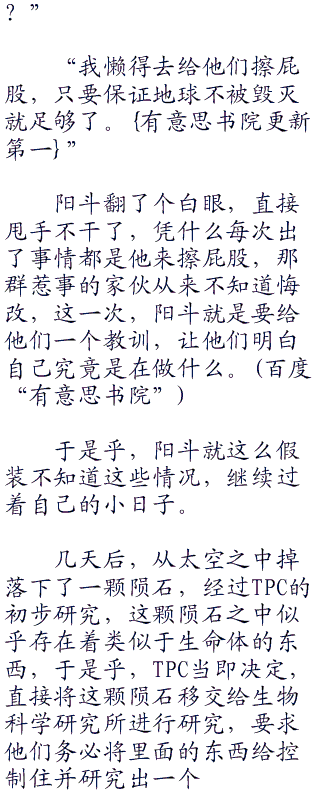 ？”
“我懒得去给他们擦屁
股，只要保证地球不被毁灭
就足够了。{有意思书院更新
第一}”
阳斗翻了个白眼，直接
甩手不干了，凭什么每次出
了事情都是他来擦屁股，那
群惹事的家伙从来不知道悔
改，这一次，阳斗就是要给
他们一个教训，让他们明白
自己究竟是在做什么。(百度
“有意思书院”)
于是乎，阳斗就这么假
装不知道这些情况，继续过
着自己的小日子。
几天后，从太空之中掉
落下了一颗陨石，经过TPC的
初步研究，这颗陨石之中似
乎存在着类似于生命体的东
西，于是乎，TPC当即决定，
直接将这颗陨石移交给生物
科学研究所进行研究，要求
他们务必将里面的东西给控
制住并研究出一个